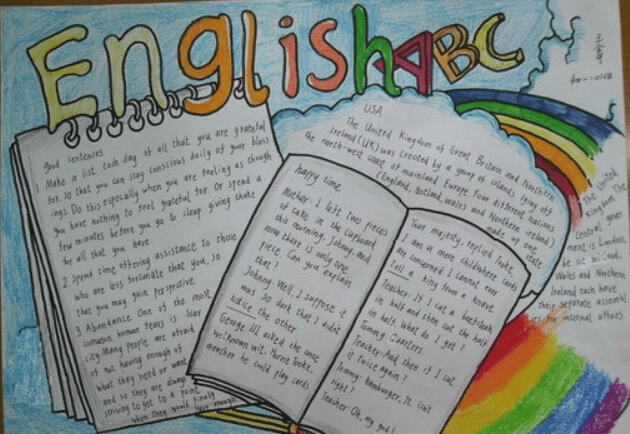 English ABC
good sentences
1. Make a list each day of all that you are grateful
for. So that you can stay conscious daily of your bless
ings. Do this especially when you are feeling as though
you have nothing to feel grateful for. Or spend a
few minutes before you go to sleep giving thanks
for all that you have.
2. Spend time offering assistance to those
who are less fortunate that you, so
that you may gain perspective.
3. Abundance One of the most
common human fears is scar
city. Many people are afraid
of not having enough of
what they need or want
and so they are always
striving to get to a point
when they would finally
have enough
happy time
Mother: I left two pieces
of cake in the cupboard
this morning, Johnny, and
now there is only one
piece. Can you explain
that?
Johnny: Well, I suppose it
was so dark that I didn't
notice the other
George III, asked the once
well known wit. Horne Tooke,
weather he could play cards
Your majesty, replied Tooke,
I am a mere child where cards
are concerned I cannot even
tell a king from a knave
Teacher: If I cut a beefsteak
in half and then cut the half
in half. What do I get?
Tommy: Quarters.
Teacher: And then if I cut
it twice again?
Tommy: Hamburger, It isn't
right!
Teacher: Oh, my god!
USA
The United Kingdom of Great Britain and Northern
Ireland (UK) was created by a group of islands lying off
the north-west coast of mainland Europe Four different nations
(England, Scotland, wales and Northern ireland)
made up one
state
The United
Kingdom The
Central gover
ment is London,
Wales and Northern
Ireland each have
their separate assembl
ies for internal affairs.